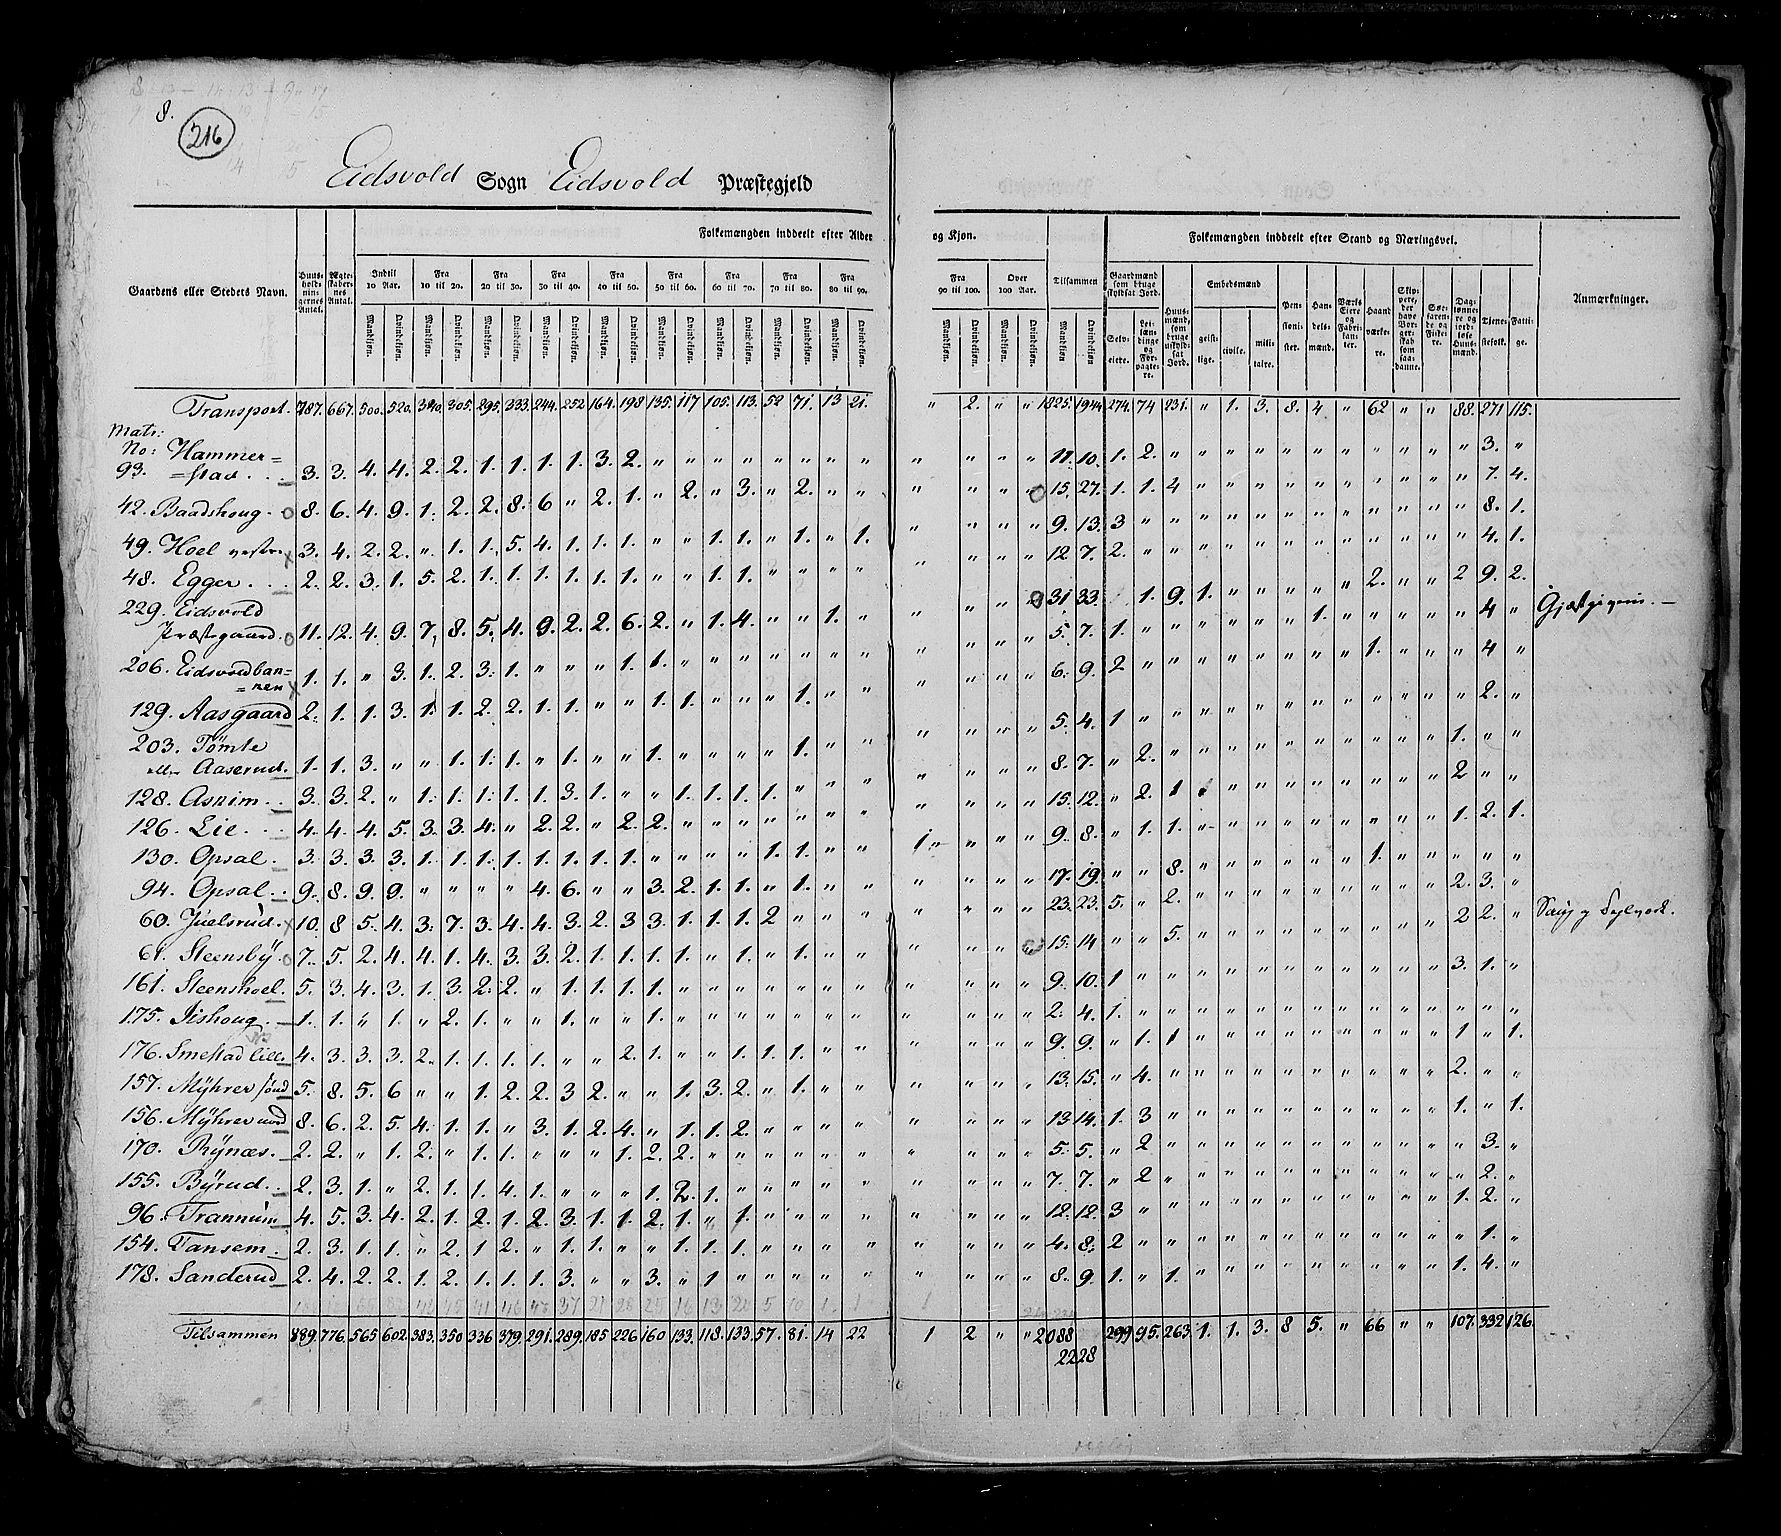 8.
216
Eidsvold Sogn Eidsvold Præstegjeld
Folkemængden inddeelt efter Alder og Kjøn. Folkemængden inddeelt efter Stand og Næringsvei.
Gaardens eller Stedets Navn. Huusholdningernes Antal. Ægteskabernes Antal. Indtil 10 Aar. Fra 10 til 20. Fra 20 til 30. Fra 30 til 40. Fra 40 til 50. Fra 50 til 60. Fra 60 til 70. Fra 70 til 80. Fra 80 til 90. Fra 90 til 100. Over 100 Aar. Tilsammen Gaardmænd som bruge skyldsat Jord. Huusmænd, som bruge uskyldsat Jord. Embedsmænd Pensionister. Handelsmænd. Værks Eiere og Fabrikanter. Haandværkere. Skippere, der have Borgerskab som saadanne. Søefarende og Fiskere. Dagslønnere og jordløse Huusmænd. Tjenestefolk. Fattige. Anmærkninger.
Mandkjøn. Qvindekjøn. Selveiere. Leilændinge og Forpagtere. geistlige. civile. militaire.
Transport. 787. 667. 500. 520. 340. 305. 295. 333. 244. 252 164. 198 135. 117 105. 113. 52 71. 13 21. " 2. " " 1825. 1944 274. 74 231. " 1. 3. 8. 4 " 62 " " 88. 271 115.
Matr:
No: Hammer=
93. =stad. 3. 3. 4. 4. 2. 2. 1. 1. 1. 1. 3. 2. " " " " " " " " " " " " 11. 10. 1. 2. " " " " " " " " " " " 3. "
42. Baadshoug. 8. 6. 4. 9. 1. 2. 2. 8. 6 " 2. 1. " 2. " 3. " 2. " " " " " " 15. 27. 1. 1. 4 " " " " " " " " " " 7. 4.
49. Hoel vestre 3. 4. 2. 2. " 1. 1. 5. 4. 1. 1. 1. " " 1. 1. " 1. " 1. " " " " 9. 13. 3 " " " " " " " " " " " " 8. 1.
48. Egger. 2. 2. 3. 1. 5. 2. 1. 1. 1. 1. 1. 1. " " 1. 1. " " " " " " " " 12. 7. 2. " " " " " " " " " " " " 4. 1.
229. Eidsvold
Præstegaard. 11. 12. 4. 9. 7. 8. 5. 4. 9. 2. 2. 6. 2. " 1. 4. " " 1. " " " " " 31 33. 1. 9. 1. " " " " " 2. " " 2 9. 2. Gjæstgiveri. —
206. Eidsvoldban=
=nen 1. 1. " 3. 1. 2. 3. 1. " " " 1. 1. " " " " " " " " " " " 5. 7. 1. " " " " " " 1. " " " " " 4 "
129. Aasgaard 2. 1. 1. 3. 1. 1. 2. 2. 1. 1. " " 1. 1. " " " 1. " " " " " " 6. 9. 2 " " " " " " " " 1. " " " 4 "
203. Tømte
eller Aaserud. 1. 1. 3. " " 1. 1. 1. " 1. " " 1. " " " " 1. " " " " " " 5. 4. 1 " " " " " " " " " " " " 2. "
128. Asnim. 3. 3. 2. " 1. 1. 1. 1. 1. 3. 1. " " 1. 1. 1. 1. " " " " " " " 8. 7. " 2. " " " " " " " " " " 1. " "
126. Lie. 4. 4. 4. 5. 3. 3. 4. " 2. 2. " 2. 2. " " " " " " " " " " " 15. 12. " 2. 1 " " " " " " " " " 2 " "
130. Opsal. 3. 3. 3. 3. 1. 1. 1. 1. 1. 1. 1. 1. " " " " 1. 1. " " 1. " " " 9. 8. " 1. 1. " " " " " " " " " 1. 2. 1.
94. Opsal. 9. 8. 9. 9. " " " " 4. 6. " " 3. 2. 1. 1. " 1. " " " " " " 17. 19. " " 8. " " " " " " 1. " " " " "
60. Juelsrud. 10. 8 5. 4. 3. 7. 3. 4. 4. 3. 2. 3 3. 1. 1. 1. 2 " " " " " " " 23. 23. 5. " 2. " " " " " " " " " 2. 3. " Saug og
61. Steensby. 7. 5. 2. 4. 4. 1. 4. 3. 3. 2. 1. 1. 1. 1. " 1. " 1. " " " " " " 15. 14 " " 5. " " " " " " " " " 2 2. "
161. Steenshoel. 5. 3. 4. 3. 1. 3. 2. 2. " 1. 1. 1. 1. " " " " " " " " " " " 9. 10. 1 " " " " " " " " " " " 3. 1. "
175. Iishoug. 1. 1. " 1. " 2. 1. " " 1. " " 1. " " " " " " " " " " " 2. 4. 1. " " " " " " " " " " " " " "
176. Smestad lille 4. 3. 3. 3. 2. 1. 1. 1. 1. " " 2. 1. " " 1. 1. 1. " " " " " " 9. 9. " 1. 1 " " " " " " " " " 1 " 1.
157. Myhrer sønd 5. 8. 5. 6 " " 1. 2. 2. 3 2. " " 1. 3. 2. " 1. " " " " " " 13. 15. " 4. " " " " " " " " " " 2. " "
156. Myhrer nord 8. 6. 2. 5. 4. 1. 1. " 3. 1. 2. 4. " 1. 1. 2. " " " " " " " " 13 14. 1. 3 " " " " " " " " " " 1. " 1.
170. Rynæs. 2. 2. " 1. 2. " 1. 1. " " " 1. 2. 2. " " " " " " " " " " 5. 5. " 2 " " " " " " " " " " " 3. "
155. Byrud. 2. 3. 1. " 2. 1. 1. 4. 1. " " " 1. 2. 1. " " " " " " " " " 7. 7. " 2 " " " " " " " " " " " 2. "
96. Trannum 4. 5. 3. 4. 2. 1. 2. 1. 2. 3. 1. 1. 2. 1. " 1. " " " " " " " " 12. 12. 3 " " " " " " " " " " " 1. 2. "
154. Tansem. 2. 3. 1. 1. " 2. 1 2. " 1. 1. " " 1. 1. 1. " " " " " " " " 4. 8. 2 " " " " " " " " " " " " 1. "
178. Sanderud 2. 4. 2. 2. 1. 2. 1. 1. 1. 3. " " 3. " 1 " " " " " " " " " 8. 9. 1. " 1. " " " " " " " " " 1. 4. "
Tilsammen 889. 776. 565 602. 383. 350 336 379. 291. 289. 185 226 160 133. 118. 133. 57. 81. 14 22 1 2 " " 2088 299 95. 263. 1. 1. 3. 8 5. " 66 " " 107. 332 126.
2228